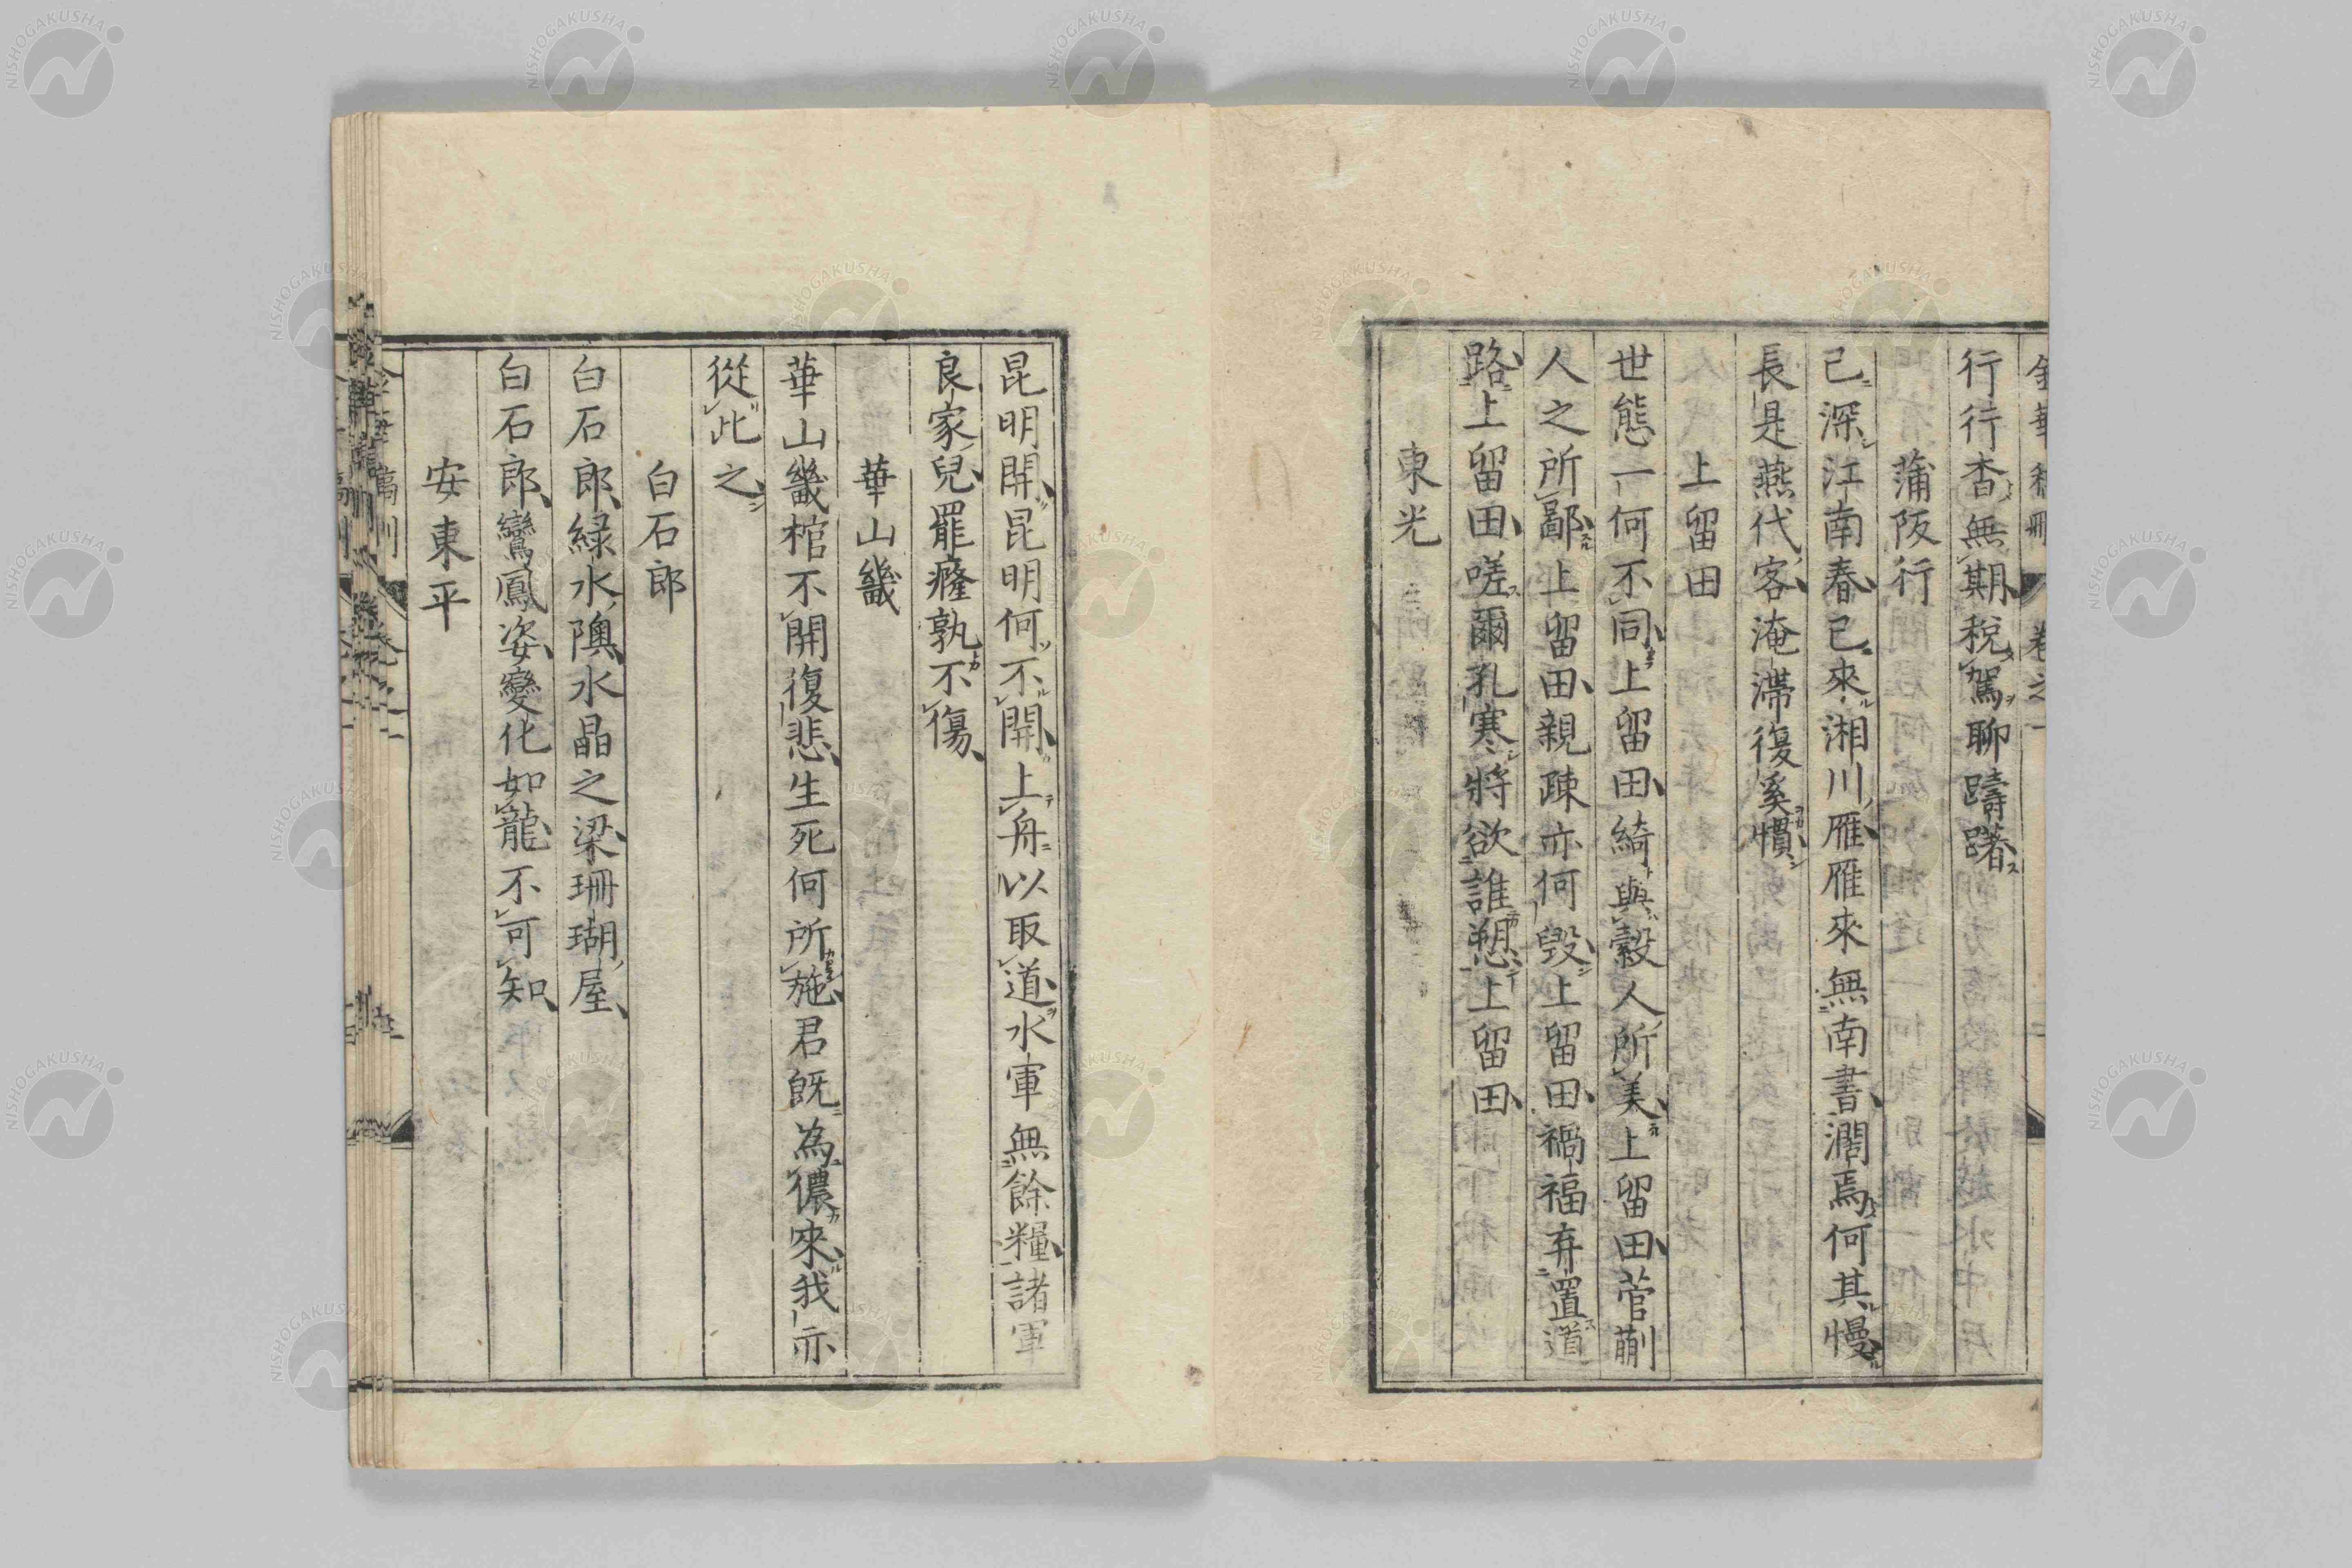 行行杳無期稅駕聊躊躇
蒲阪行
已深江南春已來湘川雁雁來無南書濶焉何其慢
長是燕代客淹滯復奚慣
上留田
世態一何不同上留田綺與縠人所美上留田菅蒯
人之所鄙上留田親疎亦何毀上留田禍福弃置道
路上留田嗟爾孔寒將欲誰愬上留田
東光
昆明開昆明何不開上舟以取道水軍無餘糧諸軍
良家兒罷癃孰不傷
華山畿
華山畿棺不開復悲生死何所施君既為儂來我亦
從此之
白石郎
白石郎綠水隩水晶之梁珊瑚屋
白石郎鸞鳳姿變化如龍不可知
安東平
NISHOGAKUSHA